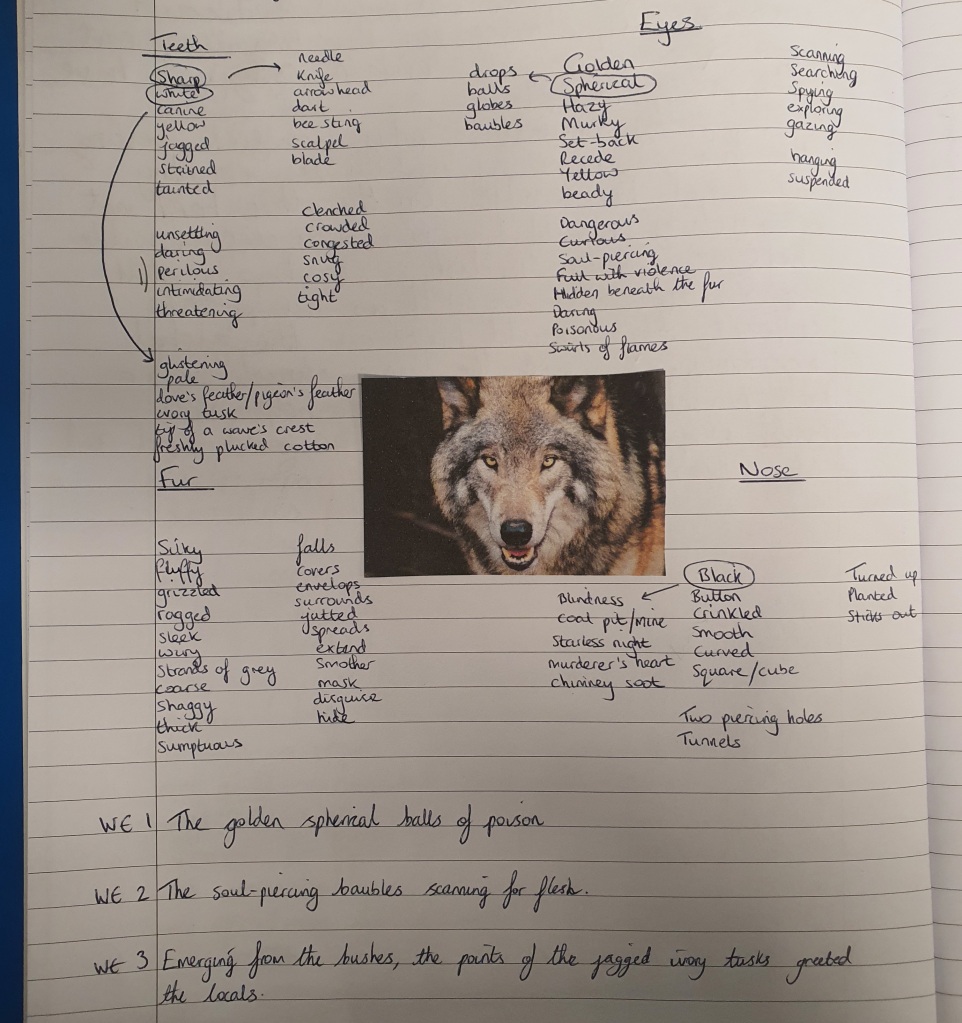 Teeth
Sharp
white
canine
yellow
jagged
stained
tainted
unsettling
daring
perilous
intimidating
threatening
needle
Knife
arrowhead
dart
bee sting
scalpel
blade
clenched
crowded
congested
snug
cosy
tight
glistening
pale
dove's feather/pigeon's feather
ivory tusk
tip of a wave's crest
freshly plucked cotton
Eyes
drops
balls
globes
baubles
Golden
Spherical
Hazy
Murky
Set-back
Recede
Yellow
beady
Dangerous
Curious
Soul-piercing
Full with violence
Hidden beneath the fur
Daring
Poisonous
Swirls of flames
Scanning
Searching
Spying
exploring
gazing
hanging
suspended
Fur
Silky
fluffy
grizzled
ragged
sleek
wiry
Strands of grey
coarse
Shaggy
thick
Sumptuous
falls
covers
envelops
surrounds
jutted
spreads
extend
Smother
mask
disguise
hide
Nose
Blindness
coal pit/mine
Starless night
murderer's heart
chimney soot
Black
Button
Crinkled
Smooth
Curved
Square/cube
Two piercing holes
Tunnels
Turned up
Planted
Sticks out
WE 1 The golden spherical balls of poison
WE 2 The soul-piercing baubles scanning for flesh.
WE 3 Emerging from the bushes, the points of the jagged ivory tusks greeted
the locals.